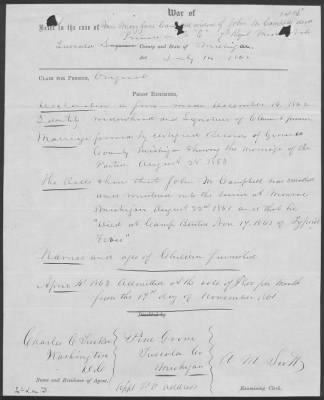 War of
Brief in the case of widow of John M Campbell
Private in Co "C" 7th Regt
Tuscola County and State of Michigan.
Claim for Pension, Original
Proof Exhibited.
Declaration in form made December 16, 1862
Identity widowhood and signature of Claimant proven
Marriage proved by certified Record of Genesee
County Michigan showing the marriage of the
Parties August 28 1853
The Rolls show that John M Campbell was enrolled
and mustered into the service at Monroe
Michigan August 22nd 1861 and that he
"Died at Camp Benton Nov 17. 1861 of Typhoid
Fever"
Names and ages of Children furnished
April 4th 1863 Admitted at the rate of $8 per month
from the 17th day of November 1861
Charles C Tucker
Washington
D.C.
Pine Grove
Tuscola Co
Michigan
P.O. address
A M Scott
Name and Residence of Agent.
Examining Clerk.